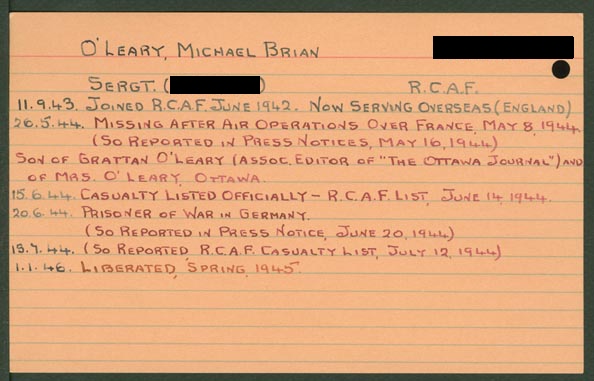 O'LEARY, MICHAEL BRIAN
SERGT. ( ) R.C.A.F.
11.9.43. JOINED R.C.A.F. JUNE 1942. NOW SERVING OVERSEAS (ENGLAND)
26.5.44. MISSING AFTER AIR OPERATIONS OVER FRANCE, MAY 8, 1944.
(SO REPORTED IN PRESS NOTICES, MAY 16, 1944)
SON OF GRATTAN O'LEARY (ASSOC. EDITOR OF "THE OTTAWA JOURNAL") AND
OF MRS. O'LEARY, OTTAWA.
15.6.44. CASUALTY LISTED OFFICIALLY – R.C.A.F. LIST, JUNE 14, 1944.
20.6.44. PRISONER OF WAR IN GERMANY.
(SO REPORTED IN PRESS NOTICE, JUNE 20, 1944)
13.7.44. (SO REPORTED, R.C.A.F. CASUALTY LIST, JULY 12, 1944)
1.1.46. LIBERATED, SPRING, 1945.